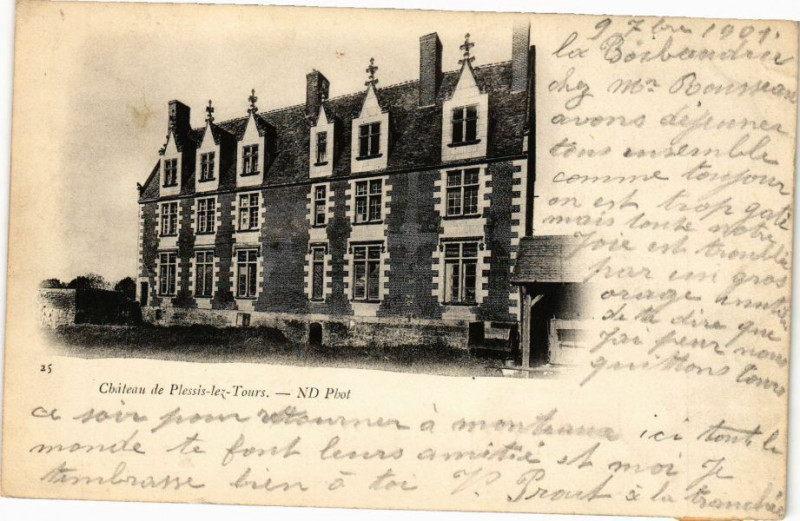 9 7bre 1901.
la Boisbaudrie
chez Mr Rousseau
avons déjeuner
tous ensemble
comme toujour
on est trop gaté
mais toute notre
Joie est troublée
par un gros
orage inutile
de te dire que
J'ai peur nous
quittons tours
25
Château de Plessis-lez-Tours. — ND Phot
ce soir pour retourner à monteaux ici tout le
monde te font leurs amitié et moi Je
t'embrasse bien à toi V. Prout à la tranchée